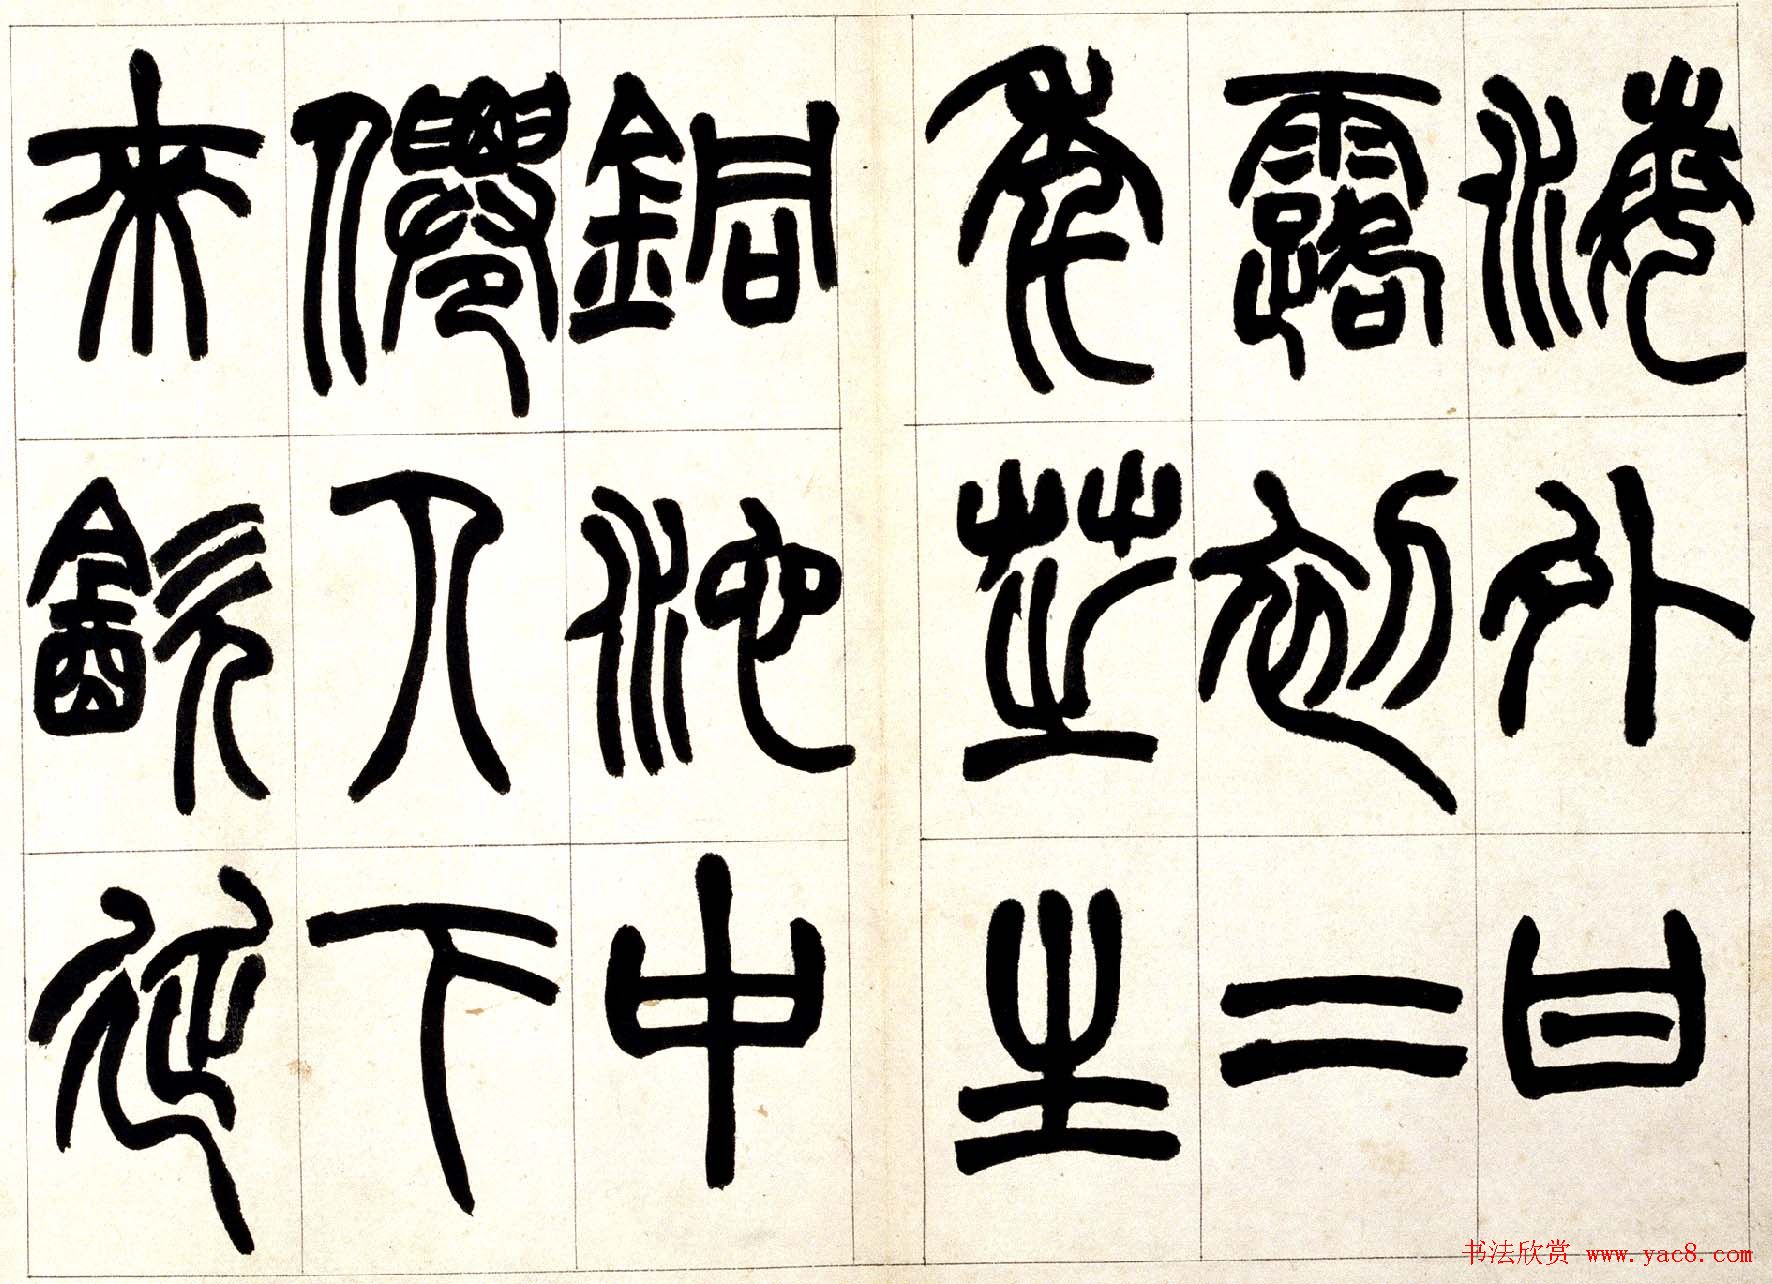 海外甘
露初二
年芝生
銅池中
僊人下
來飲延
书法欣赏 www.yac8.com